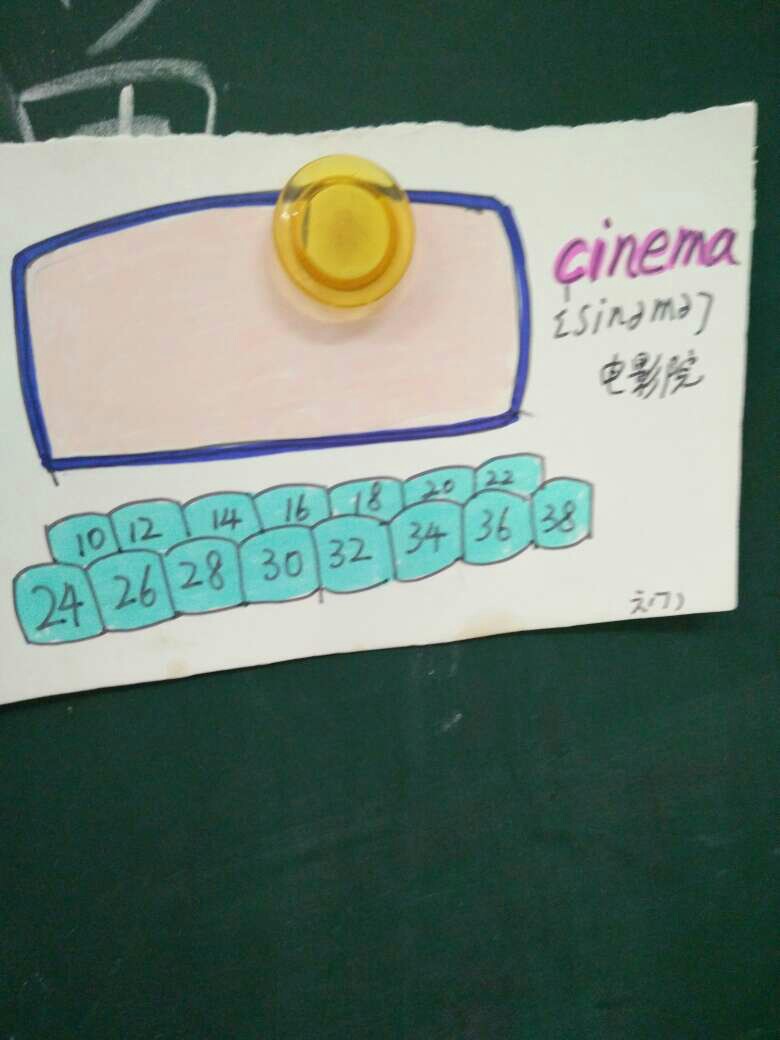 cinema
[sinəmə]
电影院
10 12 14 16 18 20 22
24 26 28 30 32 34 36 38